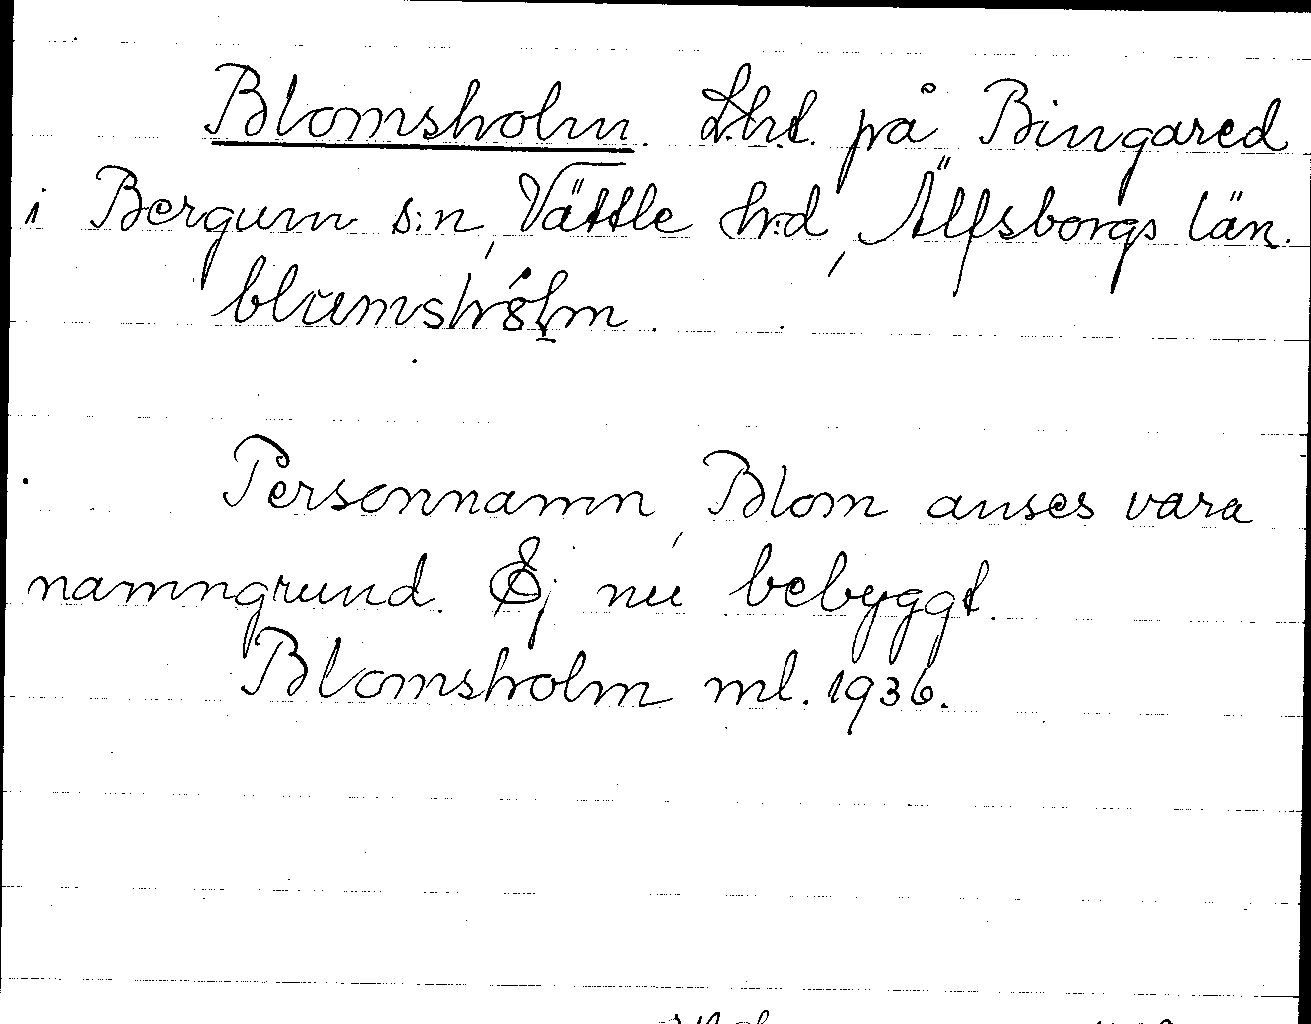 Blomsholm. L.h.t. på Bingared
i Bergum s:n, Vättle h:d, Älfsborgs län.
Personnamn, Blom anses vara
namngrund. Ej nu bebyggt.
Blomsholm ml. 1936.